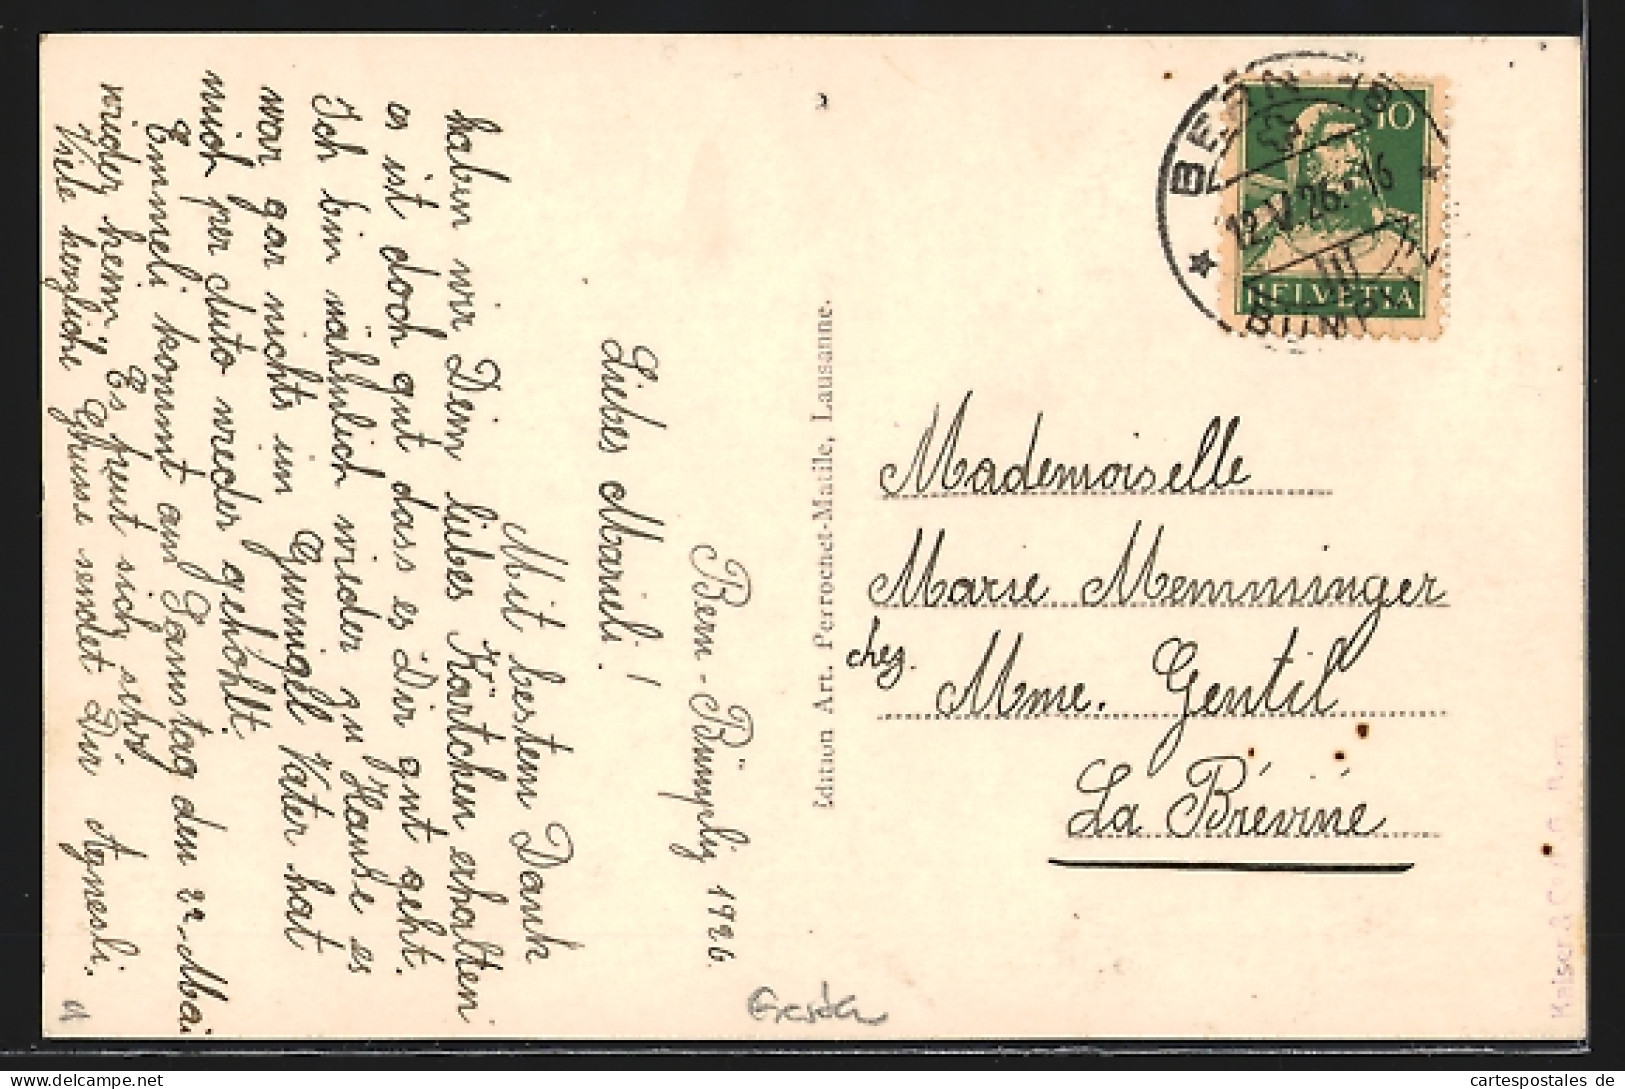 Bern-Bümpliz 1926.
Liebes Marieli!
Mit bestem Dank
haben wir Dein liebes Kärtchen erhalten
es ist doch gut dass es Dir gut geht.
Ich bin nähmlich wieder zu Hause es
war gar nichts im Gurnigel Vater hat
mich per Auto wieder geholt.
Emmeli kommt am Samstag den 22. Mai
wider heim. Es freut sich sehr
Viele herzliche Grüsse sendet Dir Agnesli.
Édition Art. Perrochet-Matile, Lausanne.
BERN 18
12.V.26.-16
BÜMPLIZ
10
HELVETIA
Mademoiselle
Marie Memminger
chez. Mme. Gentil
La Brévine
Kaiser & Co
cartespostales de